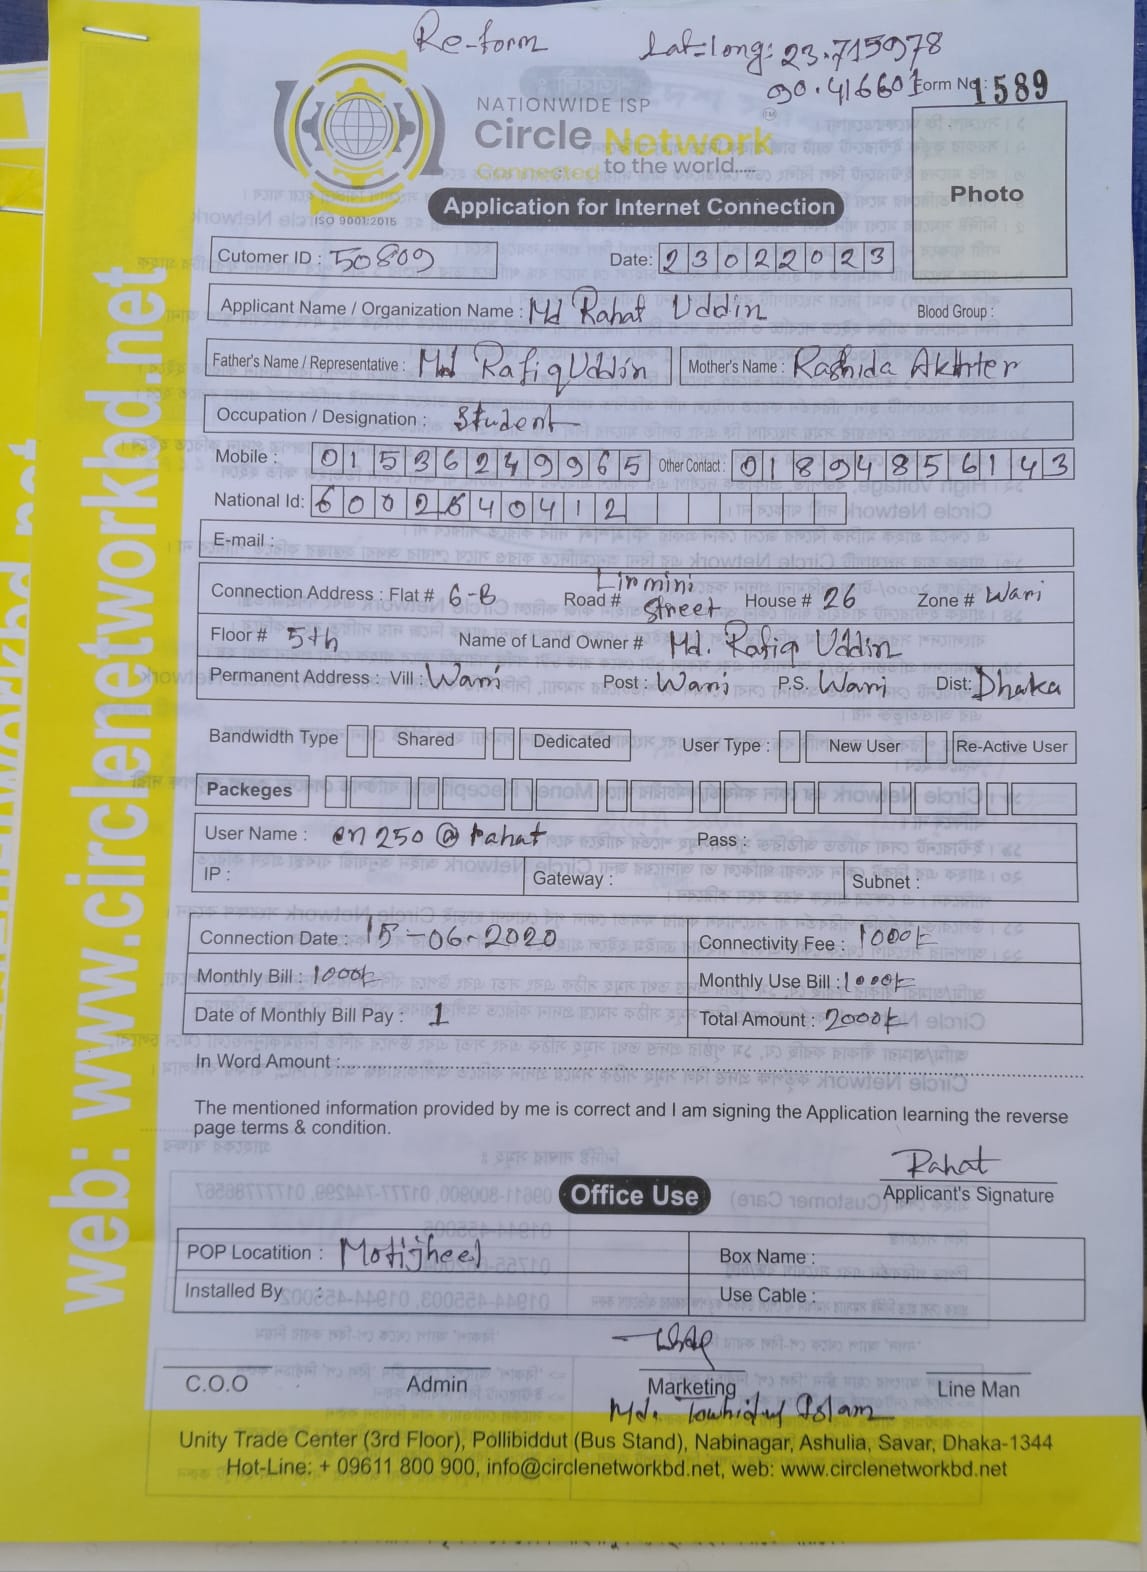 Re-form
Lat-long: 23.715978
90.416601
Form No: 1589
NATIONWIDE ISP
Circle Network
Connected to the world....
ISO 9001:2015
Application for Internet Connection
Photo
Cutomer ID : 50809
Date: 23022023
Applicant Name / Organization Name : Md Rahat Uddin
Blood Group :
Father's Name / Representative : Md Rafiq Uddin
Mother's Name : Rashida Akhter
Occupation / Designation : Student
Mobile : 01536249965 Other Contact : 01894856143
National Id: 6002640412
E-mail :
Connection Address : Flat # 6-B Road # Street House # 26 Zone # Wari
Floor # 5th Name of Land Owner # Md. Rafiq Uddin
Permanent Address : Vill : Warri Post : Wari P.S. Warri Dist: Dhaka
Bandwidth Type Shared Dedicated User Type : New User Re-Active User
Packeges
User Name : en250@rahat Pass :
IP : Gateway : Subnet :
Connection Date : 15-06-2020 Connectivity Fee : 1000৳
Monthly Bill : 1000৳ Monthly Use Bill : 1000৳
Date of Monthly Bill Pay : 1 Total Amount : 2000৳
In Word Amount :
The mentioned information provided by me is correct and I am signing the Application learning the reverse
page terms & condition.
Rahat
Applicant's Signature
Office Use
POP Locatition : Motijheel Box Name :
Installed By : Use Cable :
C.O.O Admin Marketing Line Man
Md. Towhidul Islam
Unity Trade Center (3rd Floor), Pollibiddut (Bus Stand), Nabinagar, Ashulia, Savar, Dhaka-1344
Hot-Line: + 09611 800 900, info@circlenetworkbd.net, web: www.circlenetworkbd.net
web: www.circlenetworkbd.net